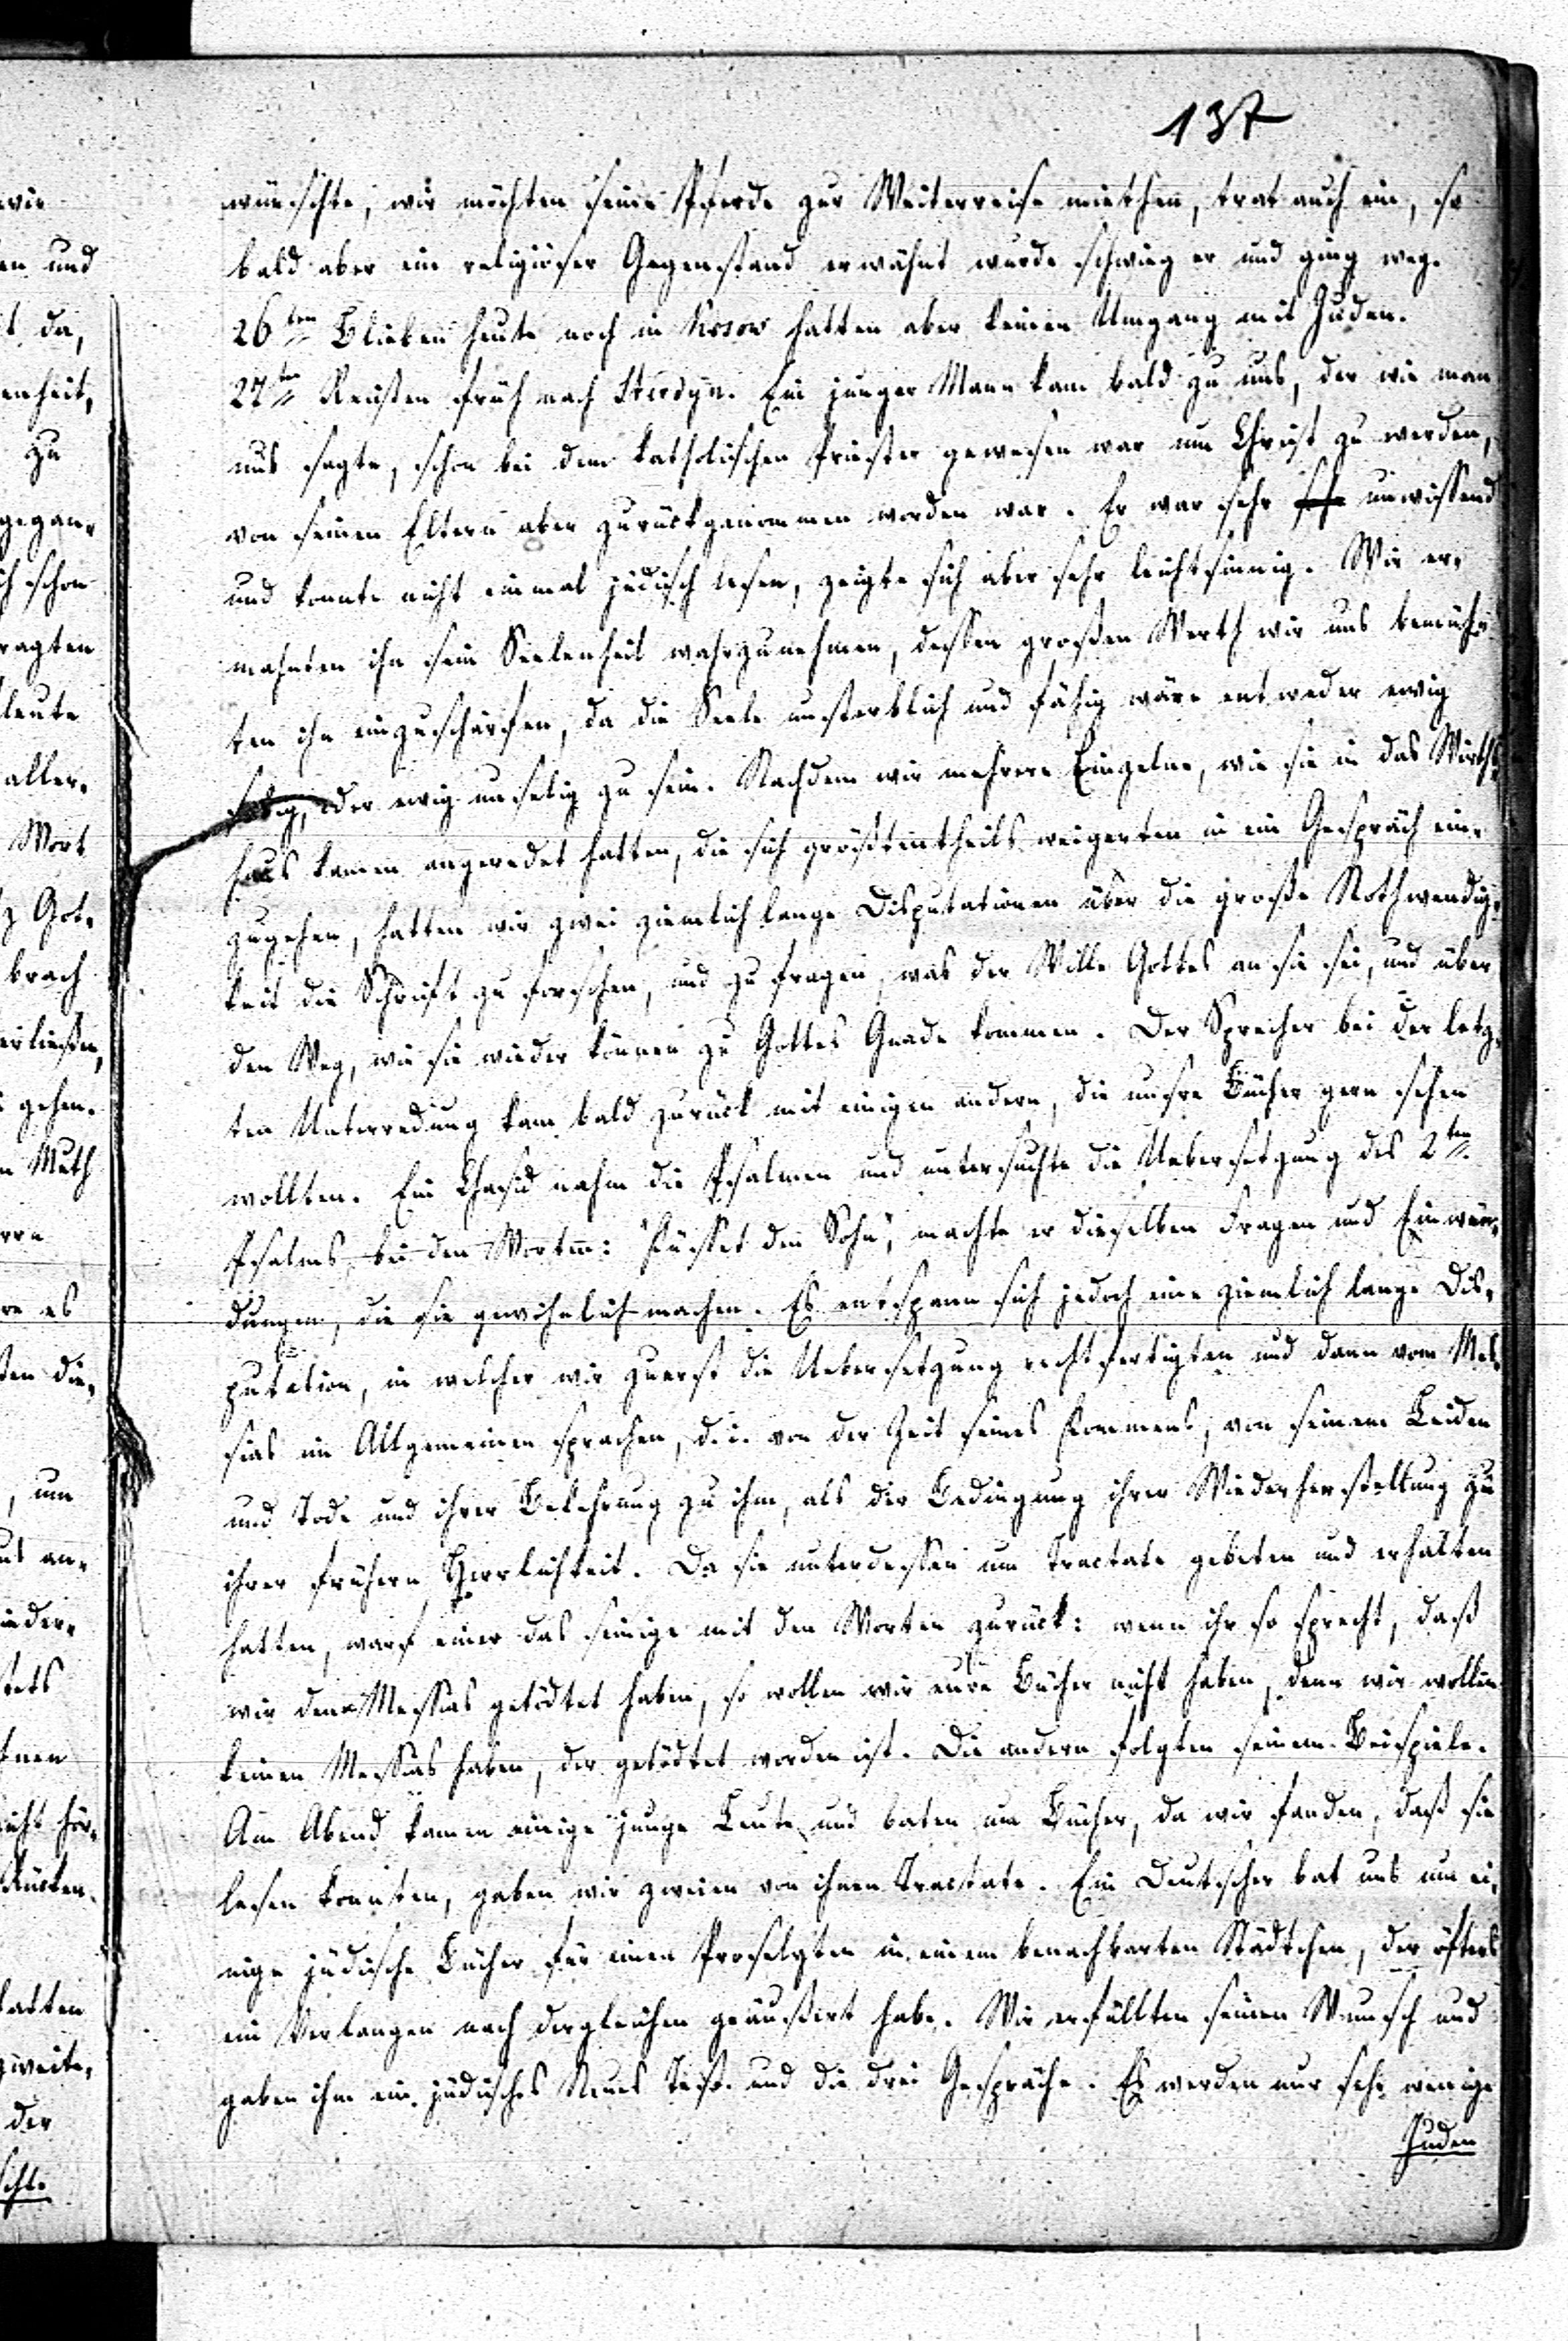 137
wünschte, wir möchten seine Pferde zur Weiterreise miethen, trat auch ein, so
bald aber ein religiöser Gegenstand erwähnt wurde schwieg er und ging weg.
26ten Blieben heute noch in Kosow hatten aber keinen Umgang mit Juden.
27ten Reisten früh nach Sterdyn. Ein junger Mann kam bald zu uns, der wie man
uns sagte, schon bei dem katholischen Priester gewesen war um Christ zu werden,
von seinen Eltern aber zurückgenommen worden war. Er war sehr unwissend
und konnte nicht einmal jüdisch lesen, zeigte sich aber sehr leichtsinnig. Wir er-
mahnten ihn sein Seelenheil wahrzunehmen, dessen großen Werth wir uns bemüh-
ten ihn einzuschärfen, da die Seele unsterblich und fähig wäre entweder ewig
selig, oder ewig unselig zu sein. Nachdem wir mehrere Einzelne, wie sie in das Wirths-
haus kamen angeredet hatten, die sich größtentheils weigerten in ein Gespräch ein-
zugehen, hatten wir zwei ziemlich lange Disputationen über die große Nothwendig-
keit die Schrift zu forschen, und zu fragen, was der Wille Gottes an sie sei, und über
den Weg, wie sie wieder können zu Gottes Gnade kommen. Der Sprecher bei der letz-
ten Unterredung kam bald zurück mit einigen andern, die unsre Bücher gern sehen
wollten. Ein Chasid nahm die Psalmen und untersuchte die Uebersetzung des 2ten
Psalms, bei den Worten: "Küsset den Sohn", machte er dieselben Fragen und Einwen-
dungen, die sie gewöhnlich machen. Es entspann sich jedoch eine ziemlich lange Dis-
putation, in welcher wir zuerst die Uebersetzung rechtfertigten und dann vom Mes-
sias im Allgemeinen sprachen, d. i. von der Zeit seines Kommens, von seinem Leiden
und Tode und ihrer Bekehrung zu ihm, als der Bedingung ihrer Wiederherstellung zu
ihrer frühern Herrlichkeit. Da sie unterdessen um Tractate gebeten und erhalten
hatten, warf einer das seinige mit den Worten zurück: wenn ihr so sprecht, daß
wir den Messias getödtet haben, so wollen wir eure Bücher nicht haben, denn wir wollen
keinen Messias haben, der getödtet worden ist. Die andern folgten seinem Beispiele.
Am Abend kamen einige junge Leute und baten um Bücher, da wir fanden, daß sie
lesen konnten, gaben wir zweien von ihnen Tractate. Ein Deutscher bat uns um ei-
nige jüdische Bücher für einen Proselyten in einem benachbarten Städtchen, der öfters
ein Verlangen nach dergleichen geäußert habe. Wir erfüllten seinen Wunsch und
gaben ihm ein jüdisches Neues Test. und die drei Gespräche. Es werden nur sehr wenige
Juden